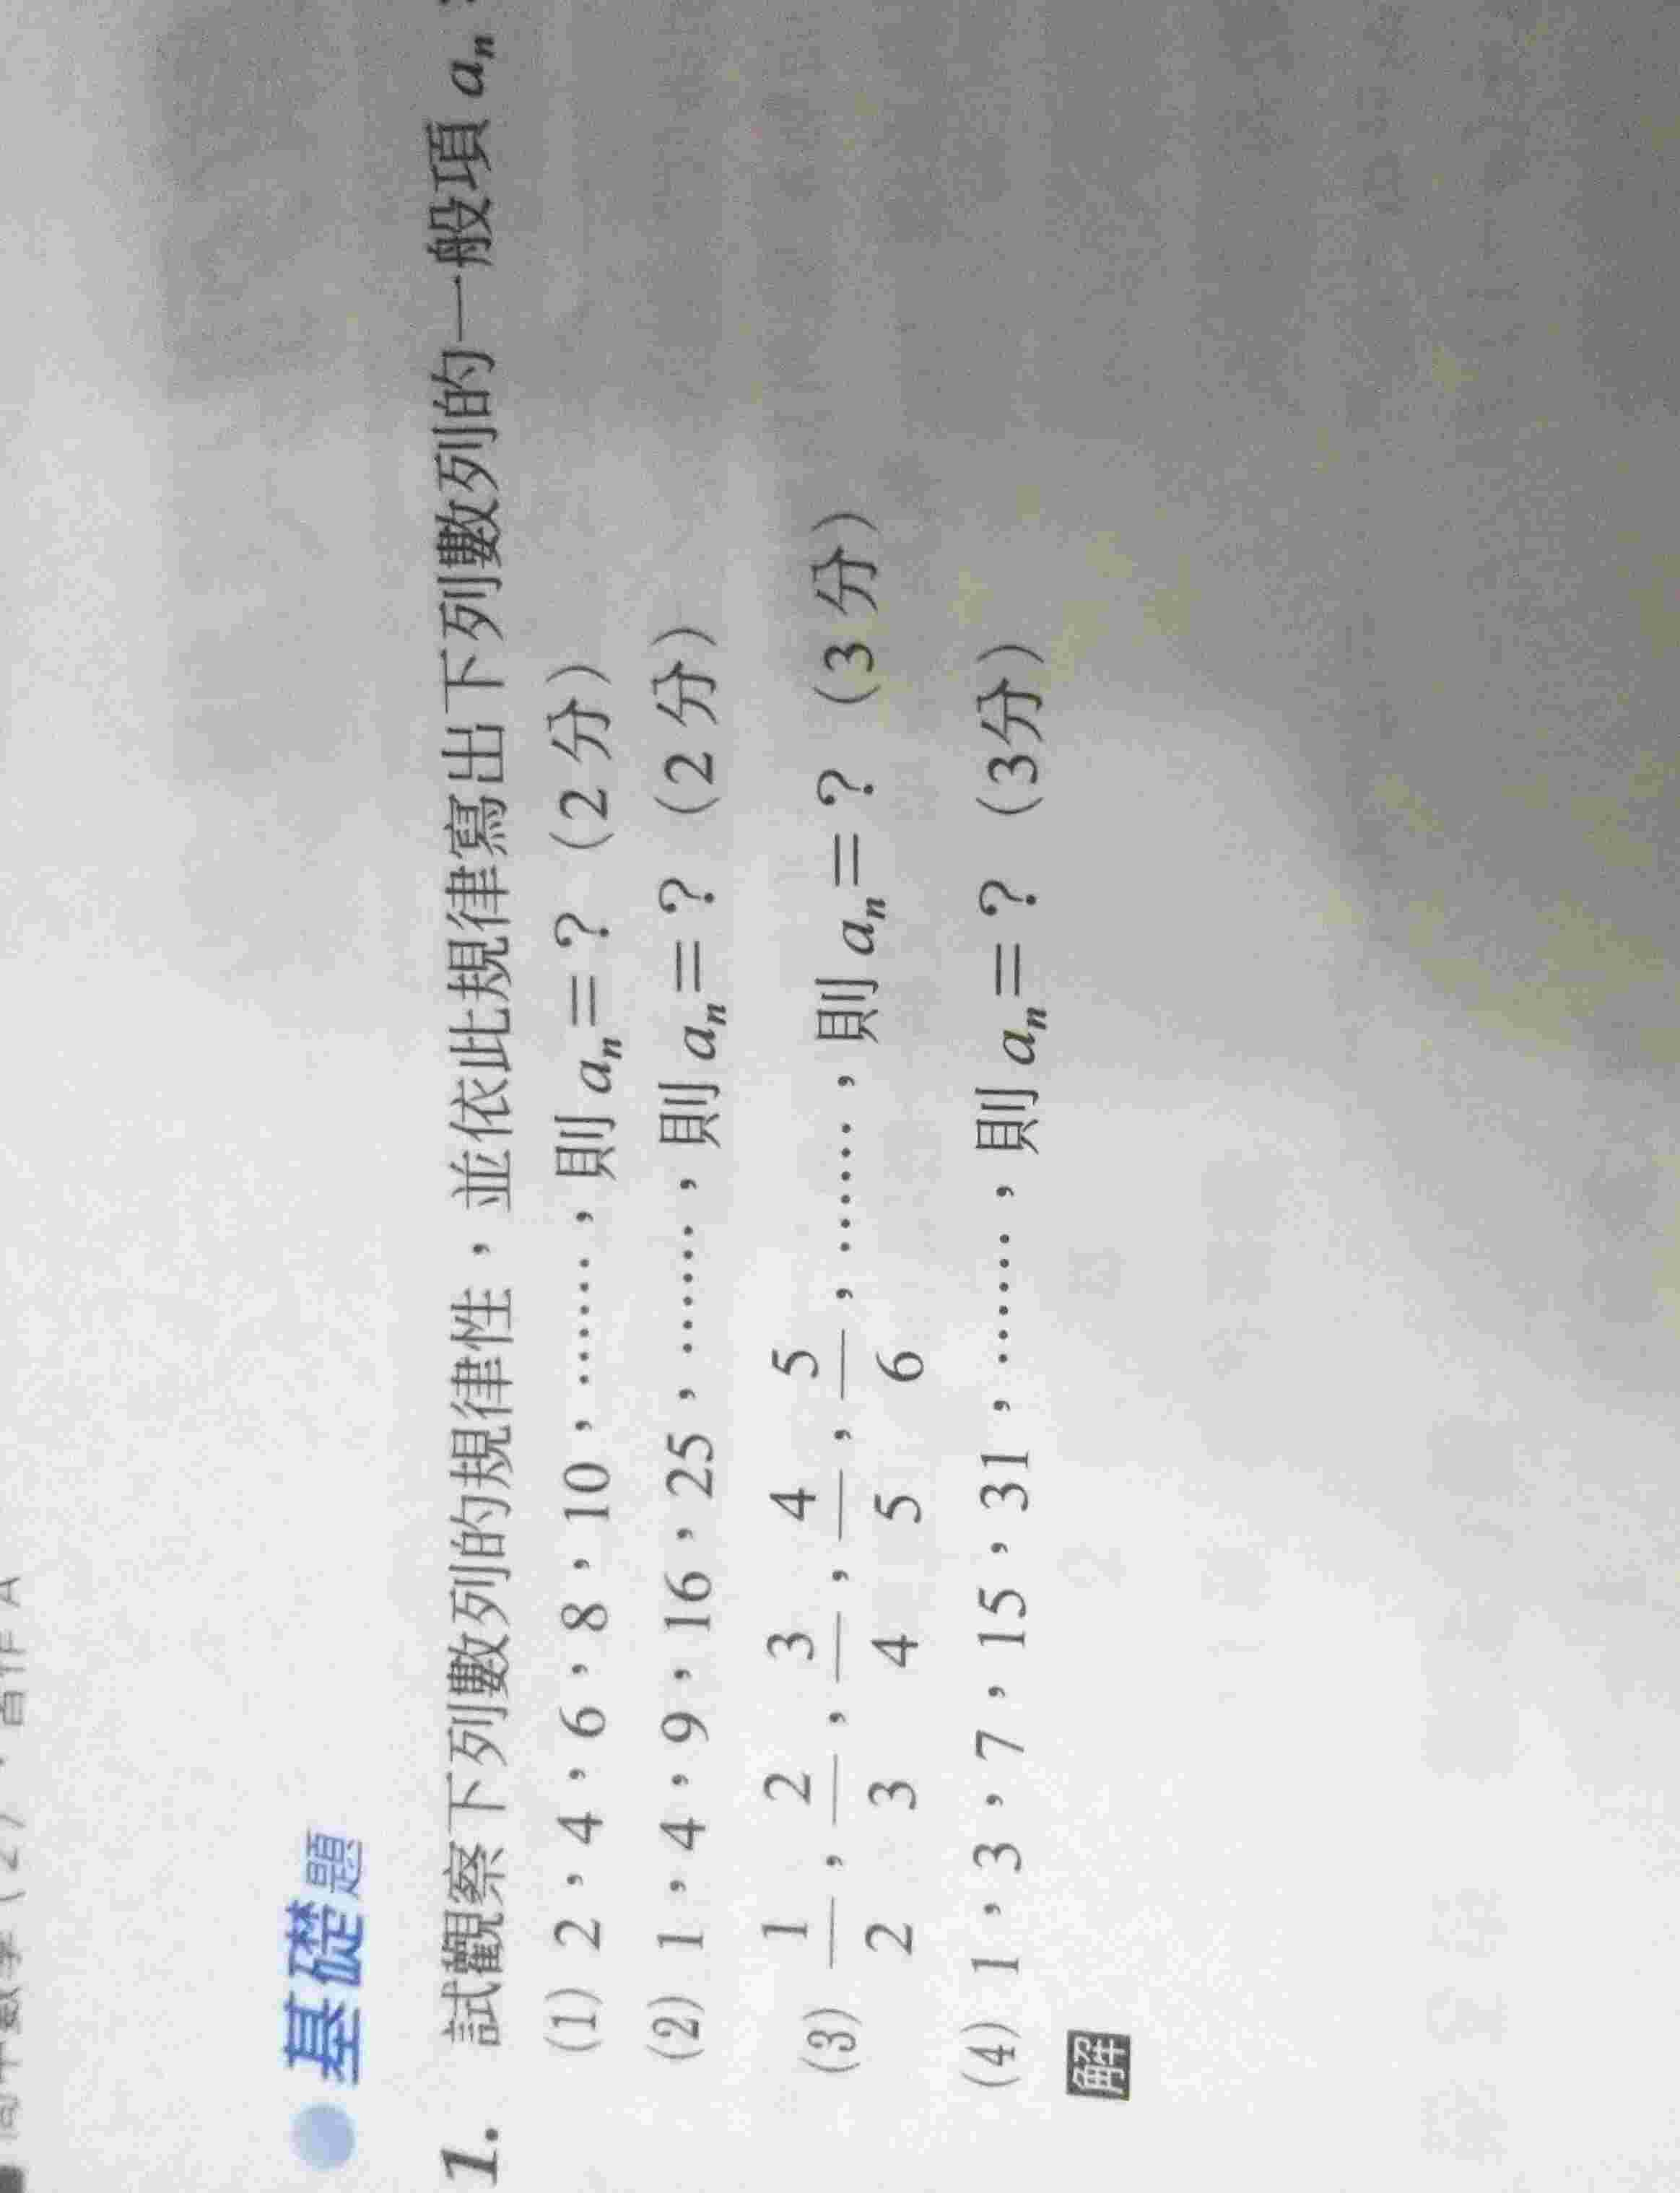 高中數學(2)．習作 A
基礎題
1. 試觀察下列數列的規律性，並依此規律寫出下列數列的一般項 aₙ：
(1) 2，4，6，8，10，……，則 aₙ=？（2 分）
(2) 1，4，9，16，25，……，則 aₙ=？（2 分）
(3) 1/2，2/3，3/4，4/5，5/6，……，則 aₙ=？（3 分）
(4) 1，3，7，15，31，……，則 aₙ=？（3分）
解